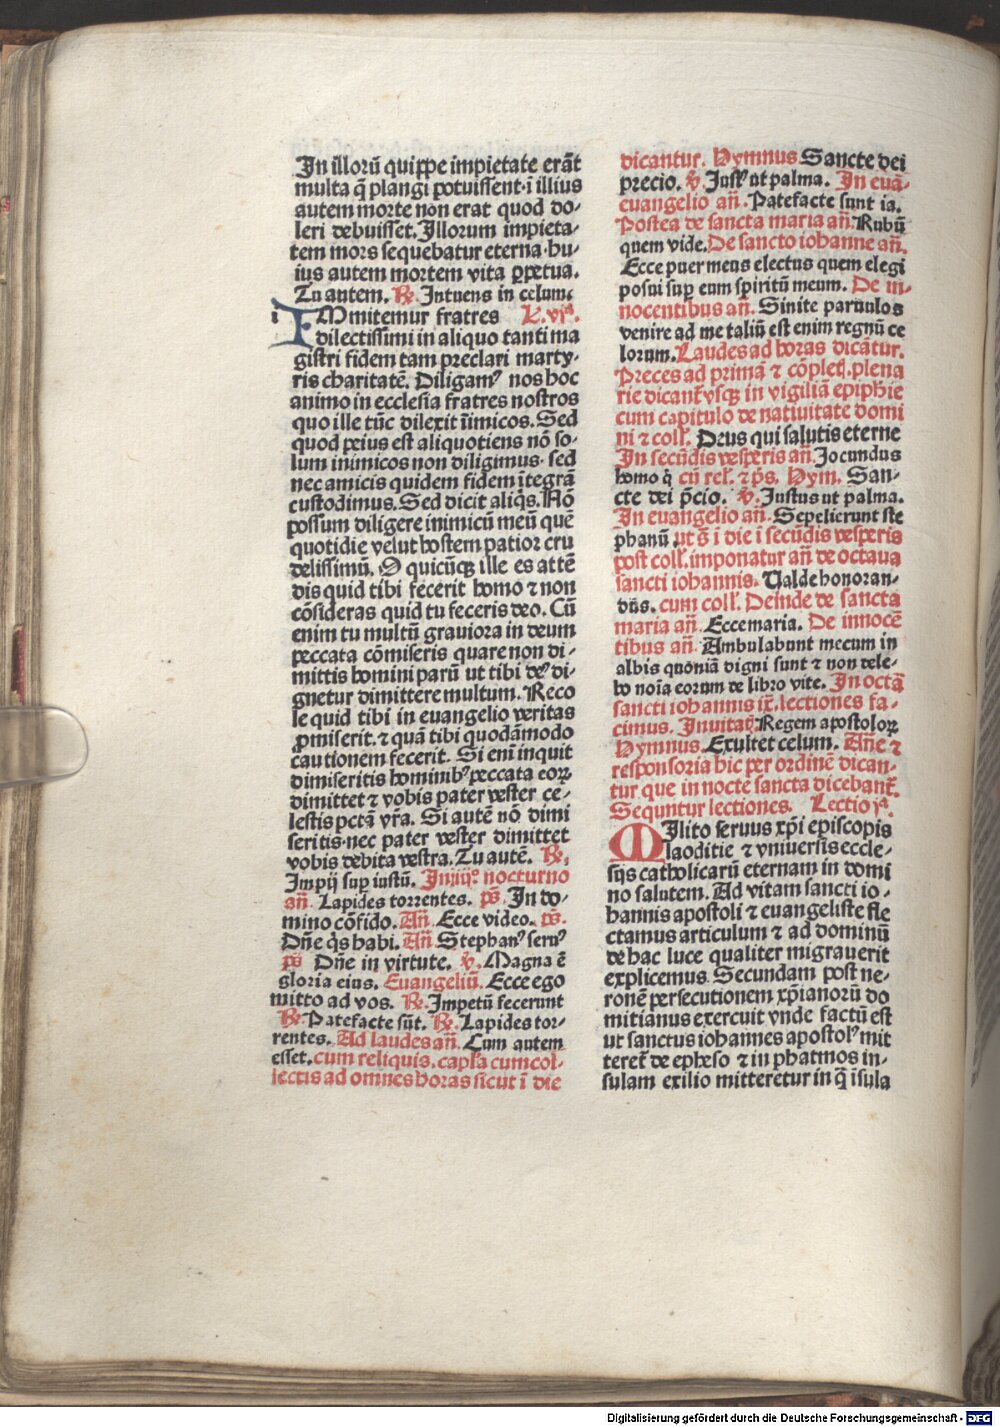 In illorū quippe impietate erāt
multa q̄ plangi potuissent·i illius
autem morte non erat quod do⸗
leri debuisset. Illorum impieta⸗
tem mors sequebatur eterna·hu⸗
ius autem mortem vita ꝑpetua.
Tu autem. ℟. Intuens in celum.
i IMmitemur fratres L.vjᵃ.
dilectissimi in aliquo tanti ma
gistri fidem tam preclari marty⸗
ris charitatē. Diligamꝰ nos hoc
animo in ecclesia fratres nostros
quo ille tūc dilexit īimicos. Sed
quod peius est aliquotiens nō so⸗
lum inimicos non diligimus· sed
nec amicis quidem fidem ītegrā
custodimus. Sed dicit aliq̇s. Nō
possum diligere inimicū meū quē
quotidie velut hostem patior cru
delissimū. O quicūqꝫ ille es attē
dis quid tibi fecerit homo ⁊ non
cōsideras quid tu feceris deo. Cū
enim tu multū graviora in deum
peccata cōmiseris quare non di⸗
mittis homini parū ut tibi deꝰ di⸗
gnetur dimittere multum. Reco
le quid tibi in euangelio veritas
ꝓmiserit.⁊ quā tibi quodāmodo
cautionem fecerit. Si eni inquit
dimiseritis hominibꝰ peccata eoꝝ
dimittet ⁊ vobis pater vester ce⸗
lestis pctā vr̄a. Si autē nō dimi
seritis·nec pater vester dimittet
vobis debita vestra. Tu autē. ℟.
Impij sup iustū. In iijͦ nocturno
an̄. Lapides torrentes. ps̄. In do⸗
mino cōfido. An̄. Ecce video. ps̄.
Dn̄e q̇s habi. An̄ Stephanꝰ seruꝰ
ps̄ Dn̄e in virtute. ℣. Magna ē
gloria eius. Euangeliū. Ecce ego
mitto ad vos. ℟. Impetū fecerunt
℟. Patefacte sūt. ℟. Lapides tor⸗
rentes. Ad laudes an̄. Cum autem
esset. cum reliquis. capl'a cum col⸗
lectis ad omnes horas sicut ī die
dicantur. Hymnus Sancte dei
precio. ℣. Just' ut palma. In euā⸗
euangelio an̄. Patefacte sunt ia.
Postea de sancta maria an̄. Rubū
quem vide. De sancto iohanne an̄.
Ecce puer meus electus quem elegi
posui sup eum spiritū meum. De in⸗
nocentibus an̄. Sinite paruulos
venire ad me taliū est enim regnū ce
lorum. Laudes ad horas dicātur.
Preces ad primā ⁊ cōplet'. plena
rie dicant̄ vsqꝫ in vigiliā epiphie
cum capitulo de natiuitate domi
ni ⁊ coll'. Deus qui salutis eterne
In secūdis vesperis an̄. Jocundus
homo q̇ cū rel'. ⁊ ps̄. Hym. San⸗
cte dei p̄cio. ℣. Justus ut palma.
In euangelio an̄. Sepelierunt ste
phanū. ut s̄ ī die ī secūdis vesperis
post coll'. imponatur an̄ de octaua
sancti iohannis. Valde honoran⸗
dus. cum coll'. Deinde de sancta
maria an̄. Ecce maria. De innocē
tibus an̄. Ambulabunt mecum in
albis quoniā digni sunt ⁊ non dele⸗
bo noīa eorum de libro vite. In octā
sancti iohannis ix. lectiones fa⸗
cimus. Inuitaṫ. Regem apostoloꝝ
Hymnus. Exultet celum. An̄e ⁊
responsoria hic per ordinē dican⸗
tur que in nocte sancta dicebant̄.
Sequntur lectiones. Lectio jᵃ.
MIlito seruus xp̄i episcopis
laoditie ⁊ vniuersis eccle⸗
sijs catholicarū eternam in domi
no salutem. Ad vitam sancti io⸗
hannis apostoli ⁊ euangeliste fle
ctamus articulum ⁊ ad dominū
de hac luce qualiter migrauerit
explicemus. Secundam post ne⸗
ronē persecutionem xp̄ianorū do
mitianus exercuit vnde factū est
ut sanctus iohannes apostol' mit
teret̄ de epheso ⁊ in phatmos in⸗
sulam exilio mitteretur in q̄ īsula
Digitalisierung gefördert durch die Deutsche Forschungsgemeinschaft - DFG